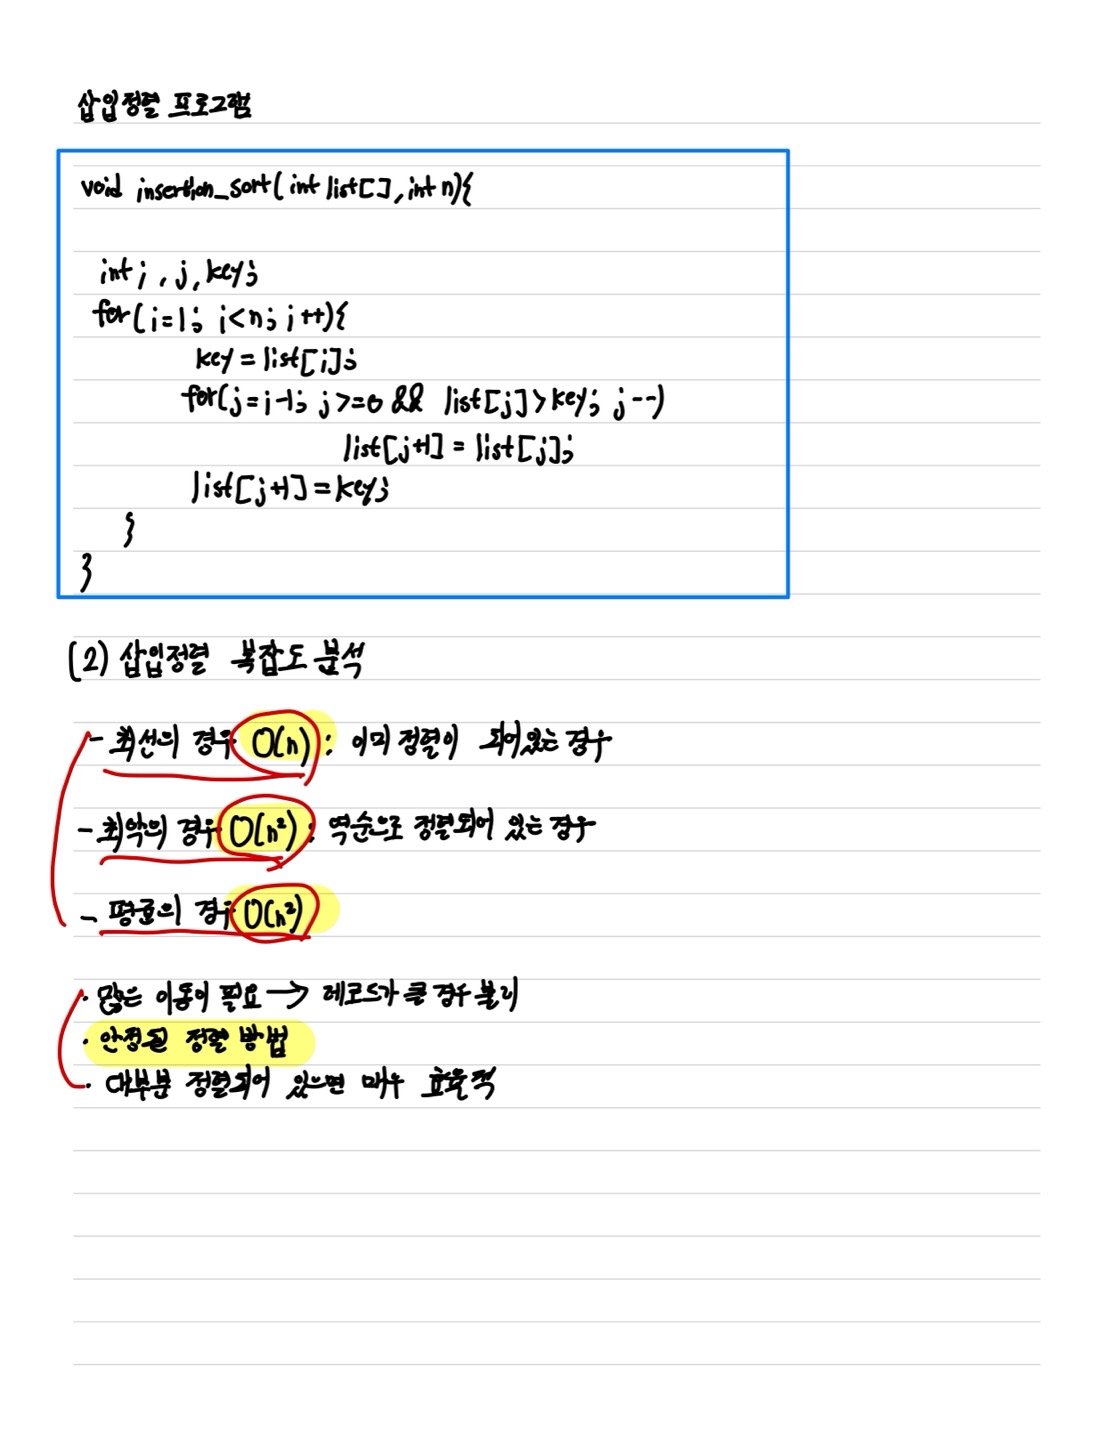 삽입정렬 프로그램
void insertion_sort(int list[], int n){
int i, j, key;
for(i=1; i<n; i++){
key = list[i];
for(j=i-1; j>=0 && list[j]>key; j--)
list[j+1] = list[j];
list[j+1] = key;
}
}
(2) 삽입정렬 복잡도 분석
- 최선의 경우 O(n) : 이미 정렬이 되어있는 경우
- 최악의 경우 O(n²) : 역순으로 정렬되어 있는 경우
- 평균의 경우 O(n²)
· 많은 이동이 필요 → 레코드가 클 경우 불리
· 안정된 정렬 방법
· 대부분 정렬되어 있으면 매우 효율적